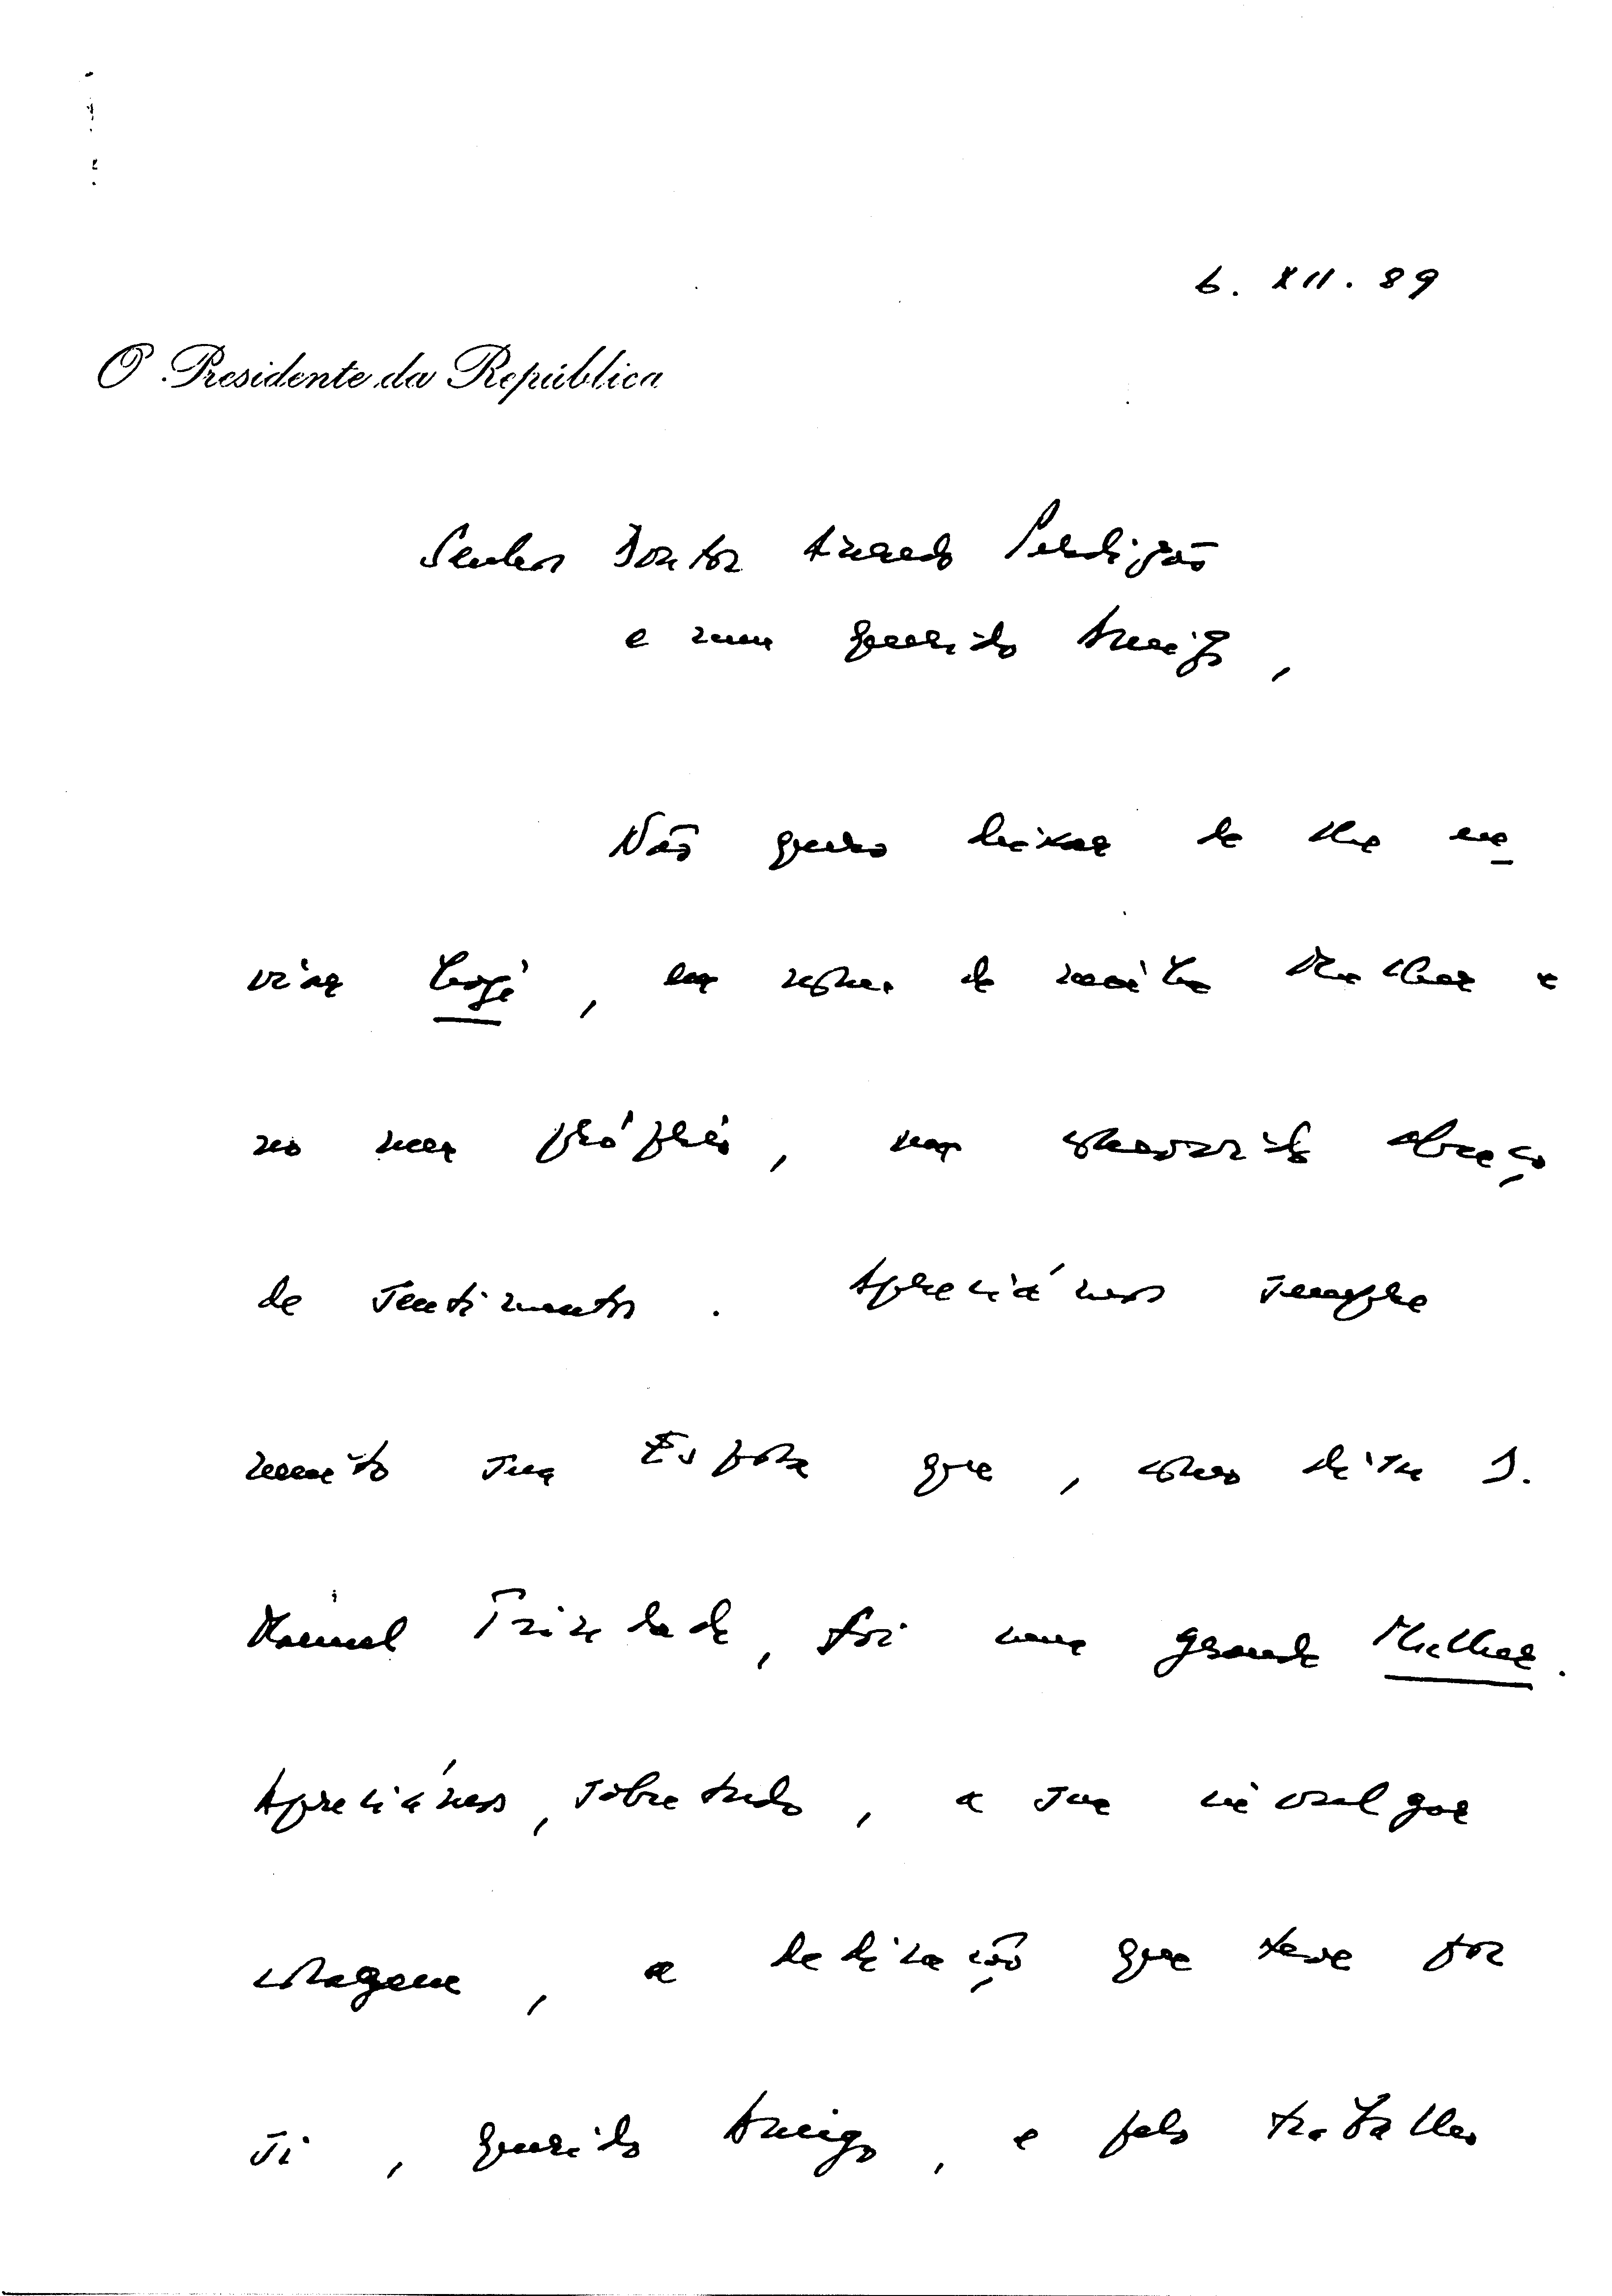 6. XII. 89
O Presidente da República
Senhor Doutor Azeredo Perdigão
e meu querido Amigo,
Não quero deixar de lhe en
viar hoje, em nome de minha Mulher e
no meu próprio, um comovido abraço
de sentimentos. Apreciámos sempre
muito sua Esposa que, como disse D.
Manuel Trindade, foi uma grande Mulher.
Apreciámos, sobretudo, a sua invulgar
coragem, a dedicação que teve por
si, querido Amigo, e pelo trabalho